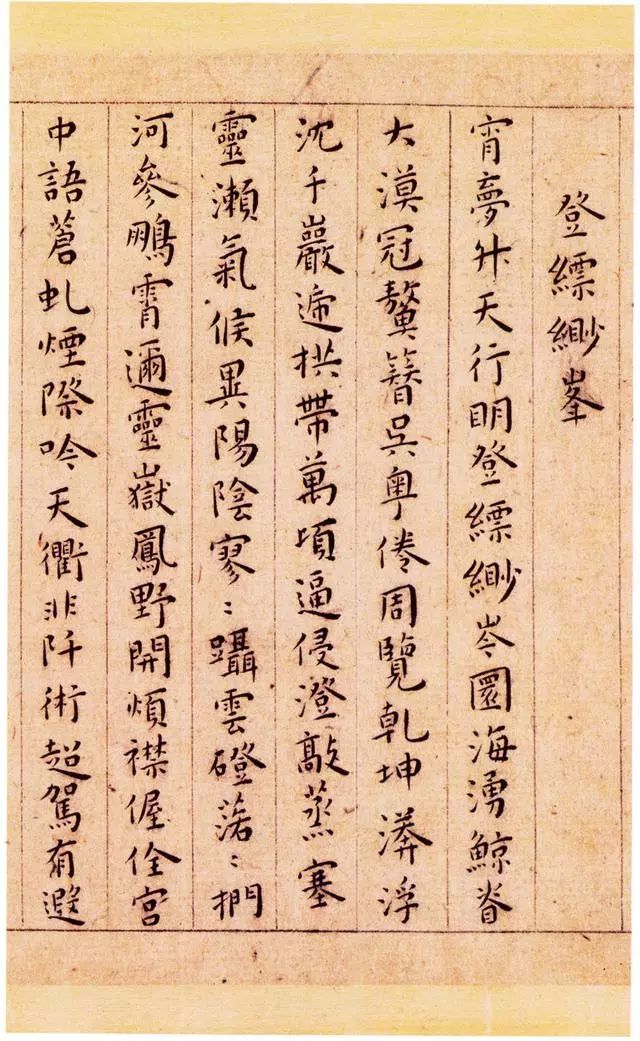 登縹緲峯
宵夢升天行明登縹緲岑圜海湧鯨脊
大漠冠鼇簪吳粤倦周覽乾坤漭浮
沈千巖遞拱帶萬頃逼侵澄歊蒸塞
靈瀨氣候異陽陰寥〻躡雲磴落〻捫
河參鵬霄邇靈嶽鳳野開煩襟偓佺宮
中語蒼虬煙際吟天衢非阡術超駕有避